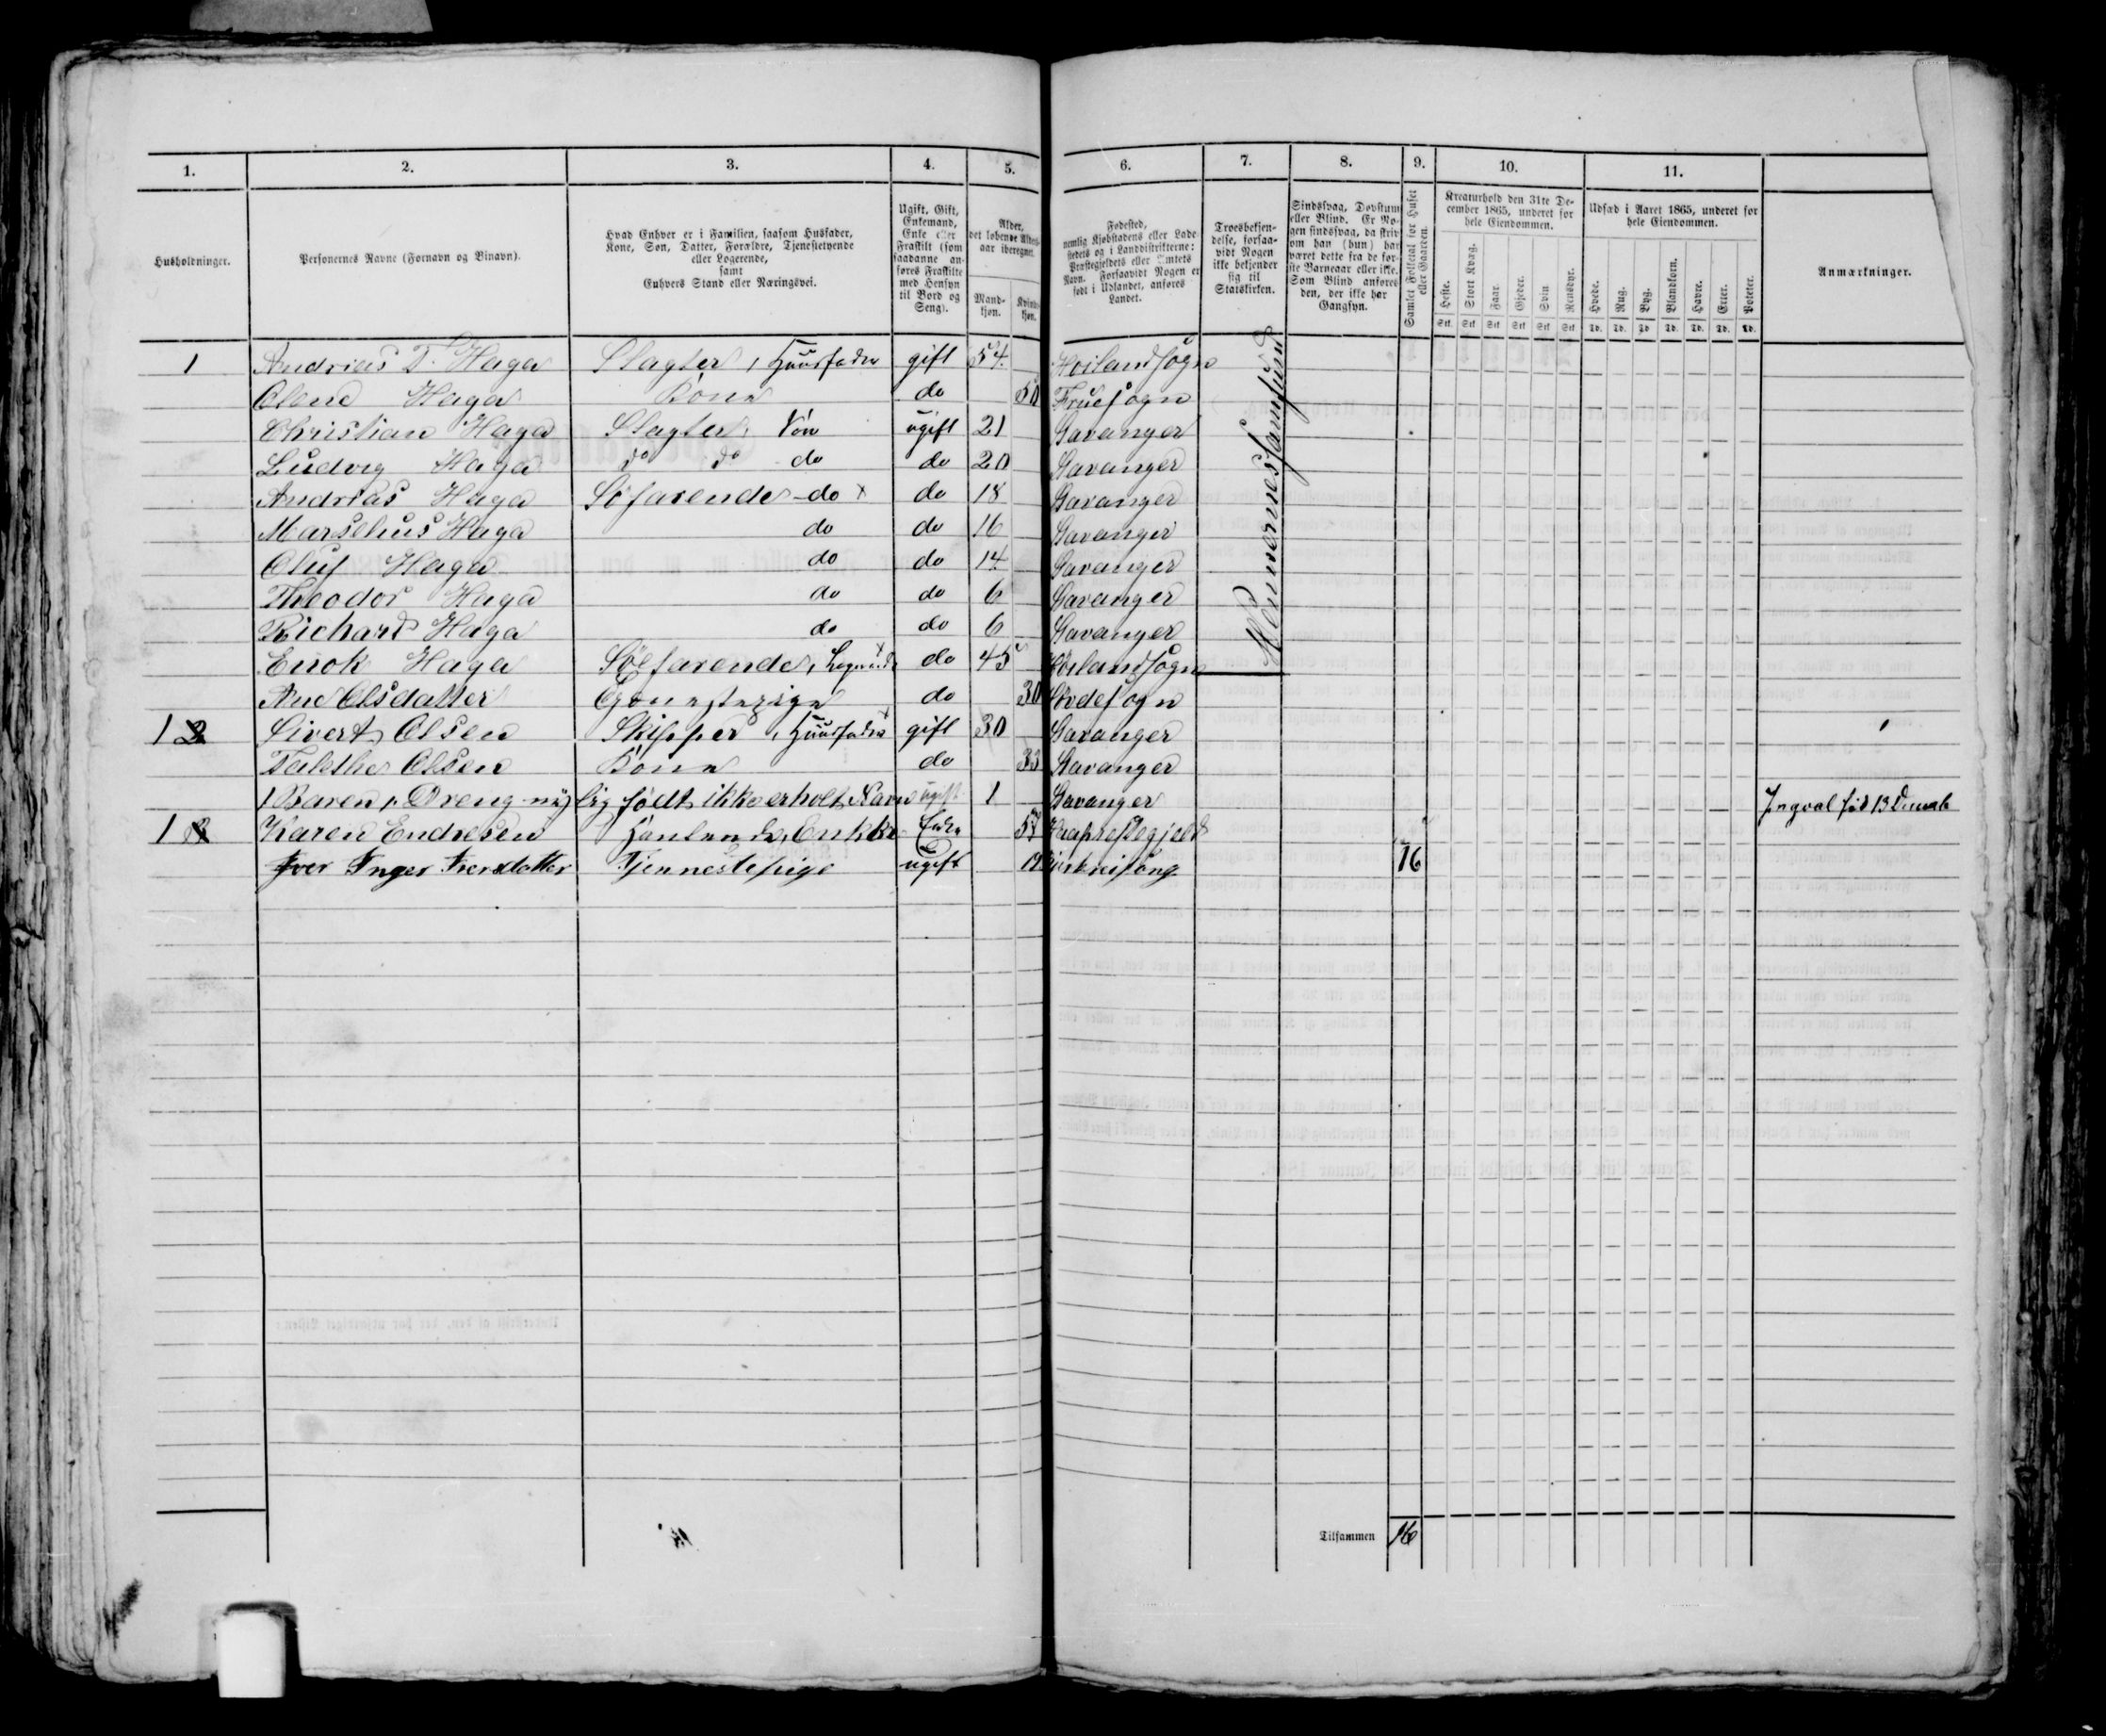 1. 2. 3. 4. 5. 6. 7. 8. 9. 10. 11.
Husholdninger.
Personernes Navne (Fornavn og Binavn).
Hvad Enhver er i Familien, saasom Husfader,
Kone, Søn, Datter, Forældre, Tjenestetyende
eller Logerende,
samt
Enhvers Stand eller Næringsvei.
Ugift, Gift,
Enkemand,
Enke eller
Fraskilt (som
saadanne an-
føres Fraskilte
med Hensyn
til Bord og
Seng).
Alder,
det løbende Alders-
aar iberegnet.
Mand-
kjøn.
Kvinde-
kjøn.
Fødested,
nemlig Kjøbstadens eller Lade-
stedets og i Landdistrikterne:
Præstegjeldets eller Amtets
Navn. Forsaavidt Nogen er
født i Udlandet, anføres
Landet.
Troesbekjen-
delse, forsaa-
vidt Nogen
ikke bekjender
sig til
Statskirken.
Sindssvag, Døvstum
eller Blind. Er No-
gen sindssvag, da skriv
om han (hun) har
været dette fra de før-
ste Barneaar eller ikke.
Som Blind anføres
den, der ikke har
Gangsyn.
Samlet Folketal for Huset
eller Gaarden.
Kreaturhold den 31te De-
cember 1865, underet for
hele Eiendommen.
Heste. Stort Kvæg. Faar. Gjeder. Svin. Rensdyr.
Stk. Stk. Stk. Stk. Stk. Stk.
Udsæd i Aaret 1865, underet for
hele Eiendommen.
Hvede. Rug. Byg. Blandkorn. Havre. Erter. Poteter.
Td. Td. Td. Td. Td. Td. Td.
Anmærkninger.
1 Andrias T. Haga Slagter, Huusfader gift 54. Hoilandsogn
Olene Haga Kone do 50 Fruesogn
Christian Haga Slagter, Søn ugift 21 Stavanger
Ludvig Haga do do do do 20 Stavanger
Andrias Haga Søfarende do x do 18 Stavanger
Marselius Haga do do 16 Stavanger
Oluf Haga do do 14 Stavanger
Theodor Haga do do 6 Stavanger
Richard Haga do do 6 Stavanger
Enok Haga Søefarende, do 45 Høilandsogn
Ane Olsdatter do 30
1 2 Sivert Olsen Skipper, Huusfader gift 30 Stavanger
Talethe Olsen Kone do 33 Stavanger
1 Baren, Dreng nylig født ikke erholt Navn ugift 1 Stavanger Ingval fød 13
1 Karen Endresen Enke 57
Inger Iversdatter Tjennestepige ugift 19 16
Tilsammen 16